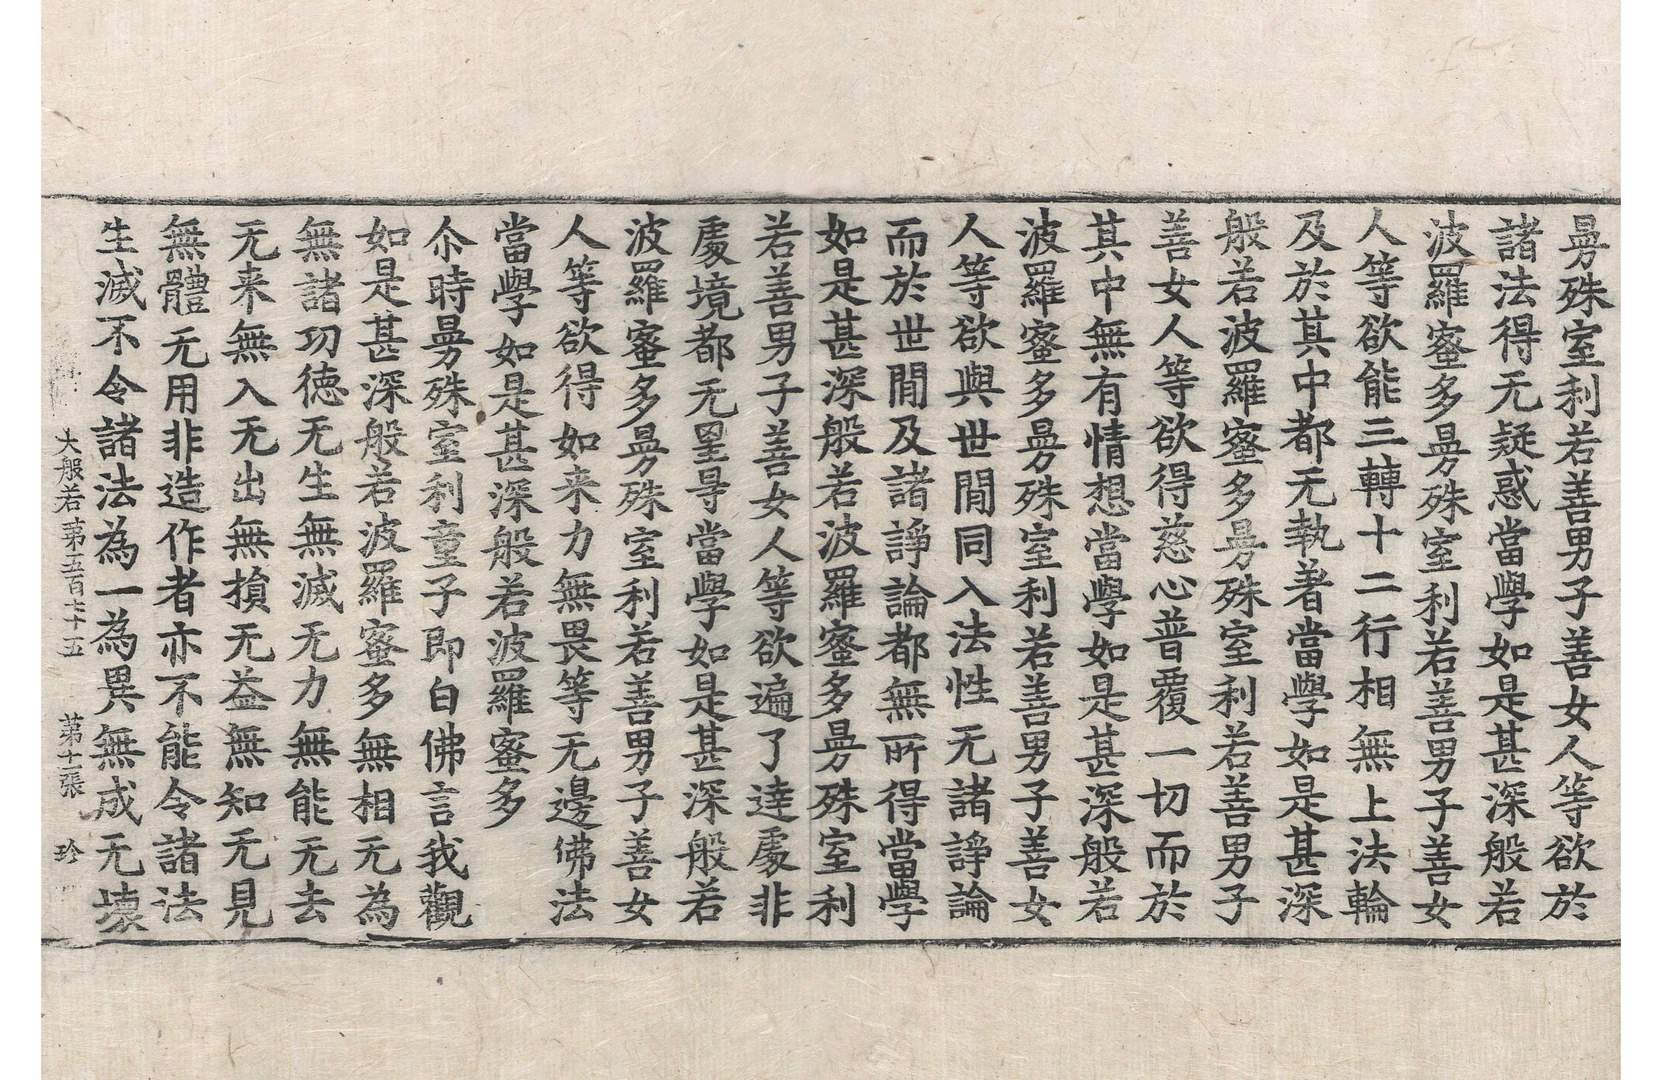 曼殊室利若善男子善女人等欲於
諸法得无疑惑當學如是甚深般若
波羅蜜多曼殊室利若善男子善女
人等欲能三轉十二行相無上法輪
及於其中都无執著當學如是甚深
般若波羅蜜多曼殊室利若善男子
善女人等欲得慈心普覆一切而於
其中無有情想當學如是甚深般若
波羅蜜多曼殊室利若善男子善女
人等欲與世間同入法性无諸諍論
而於世間及諸諍論都無所得當學
如是甚深般若波羅蜜多曼殊室利
若善男子善女人等欲遍了達處非
處境都无罣㝵當學如是甚深般若
波羅蜜多曼殊室利若善男子善女
人等欲得如来力無畏等无邊佛法
當學如是甚深般若波羅蜜多
尒時曼殊室利童子即白佛言我觀
如是甚深般若波羅蜜多無相无為
無諸功徳无生無滅无力無能无去
无来無入无出無損无益無知无見
無體无用非造作者亦不能令諸法
生滅不令諸法為一為異無成无壞
大般若第五百七十五 第十一張 珍